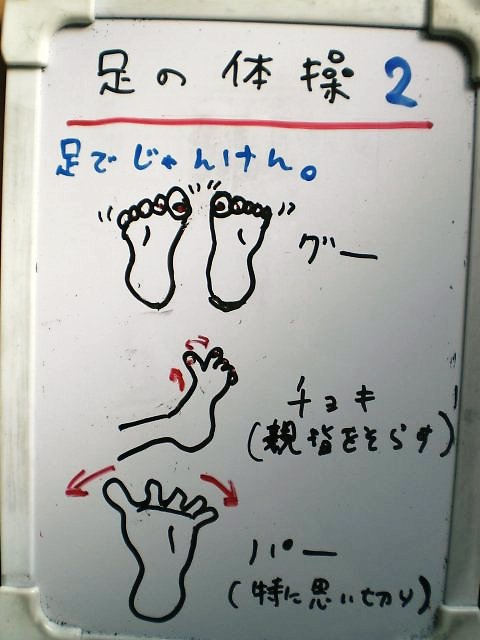 足の体操2
足でじゃんけん。
グー
チョキ
(親指をそらす)
パー
(特に思い切り)